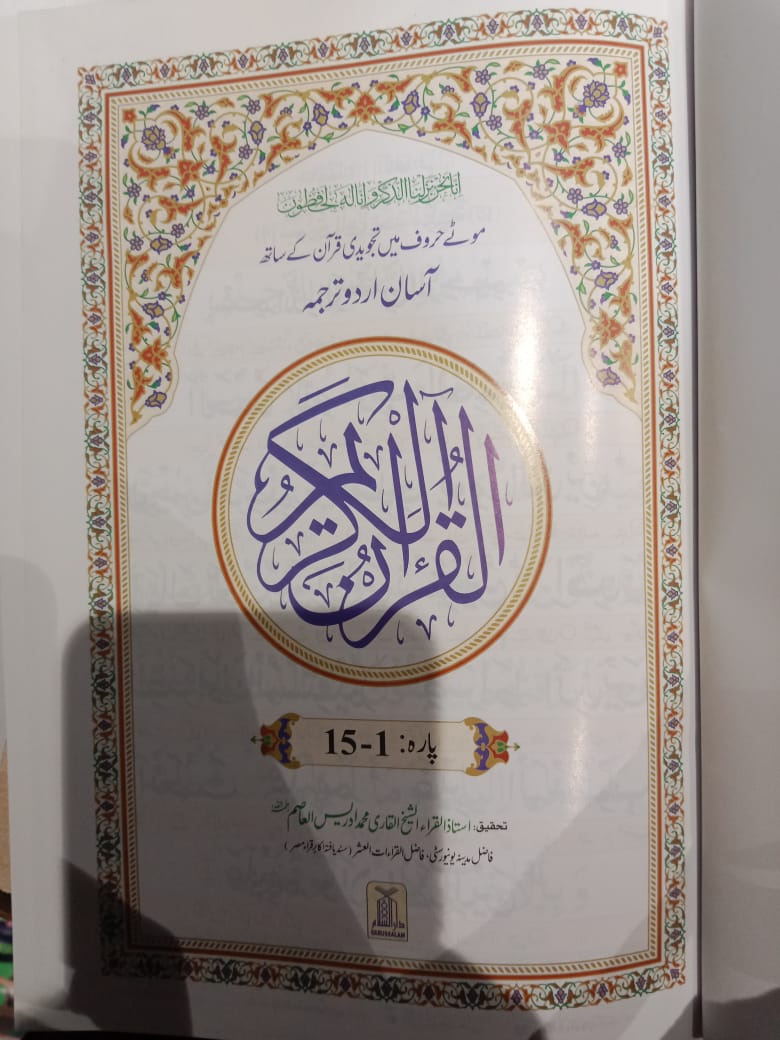 إنا نحن نزلنا الذكر وإنا له لحافظون
موٹے حروف میں تجویدی قرآن کے ساتھ
آسان اردو ترجمہ
القرآن الكريم
پارہ: 1-15
تحقیق: استاذ القراء الشیخ القاری محمد ادریس العاصم رحمہ اللہ
فاضل مدینہ یونیورسٹی، فاضل القراءات العشر (سند یافتہ اکابر قراء مصر)
دار السلام
DARUSSALAM